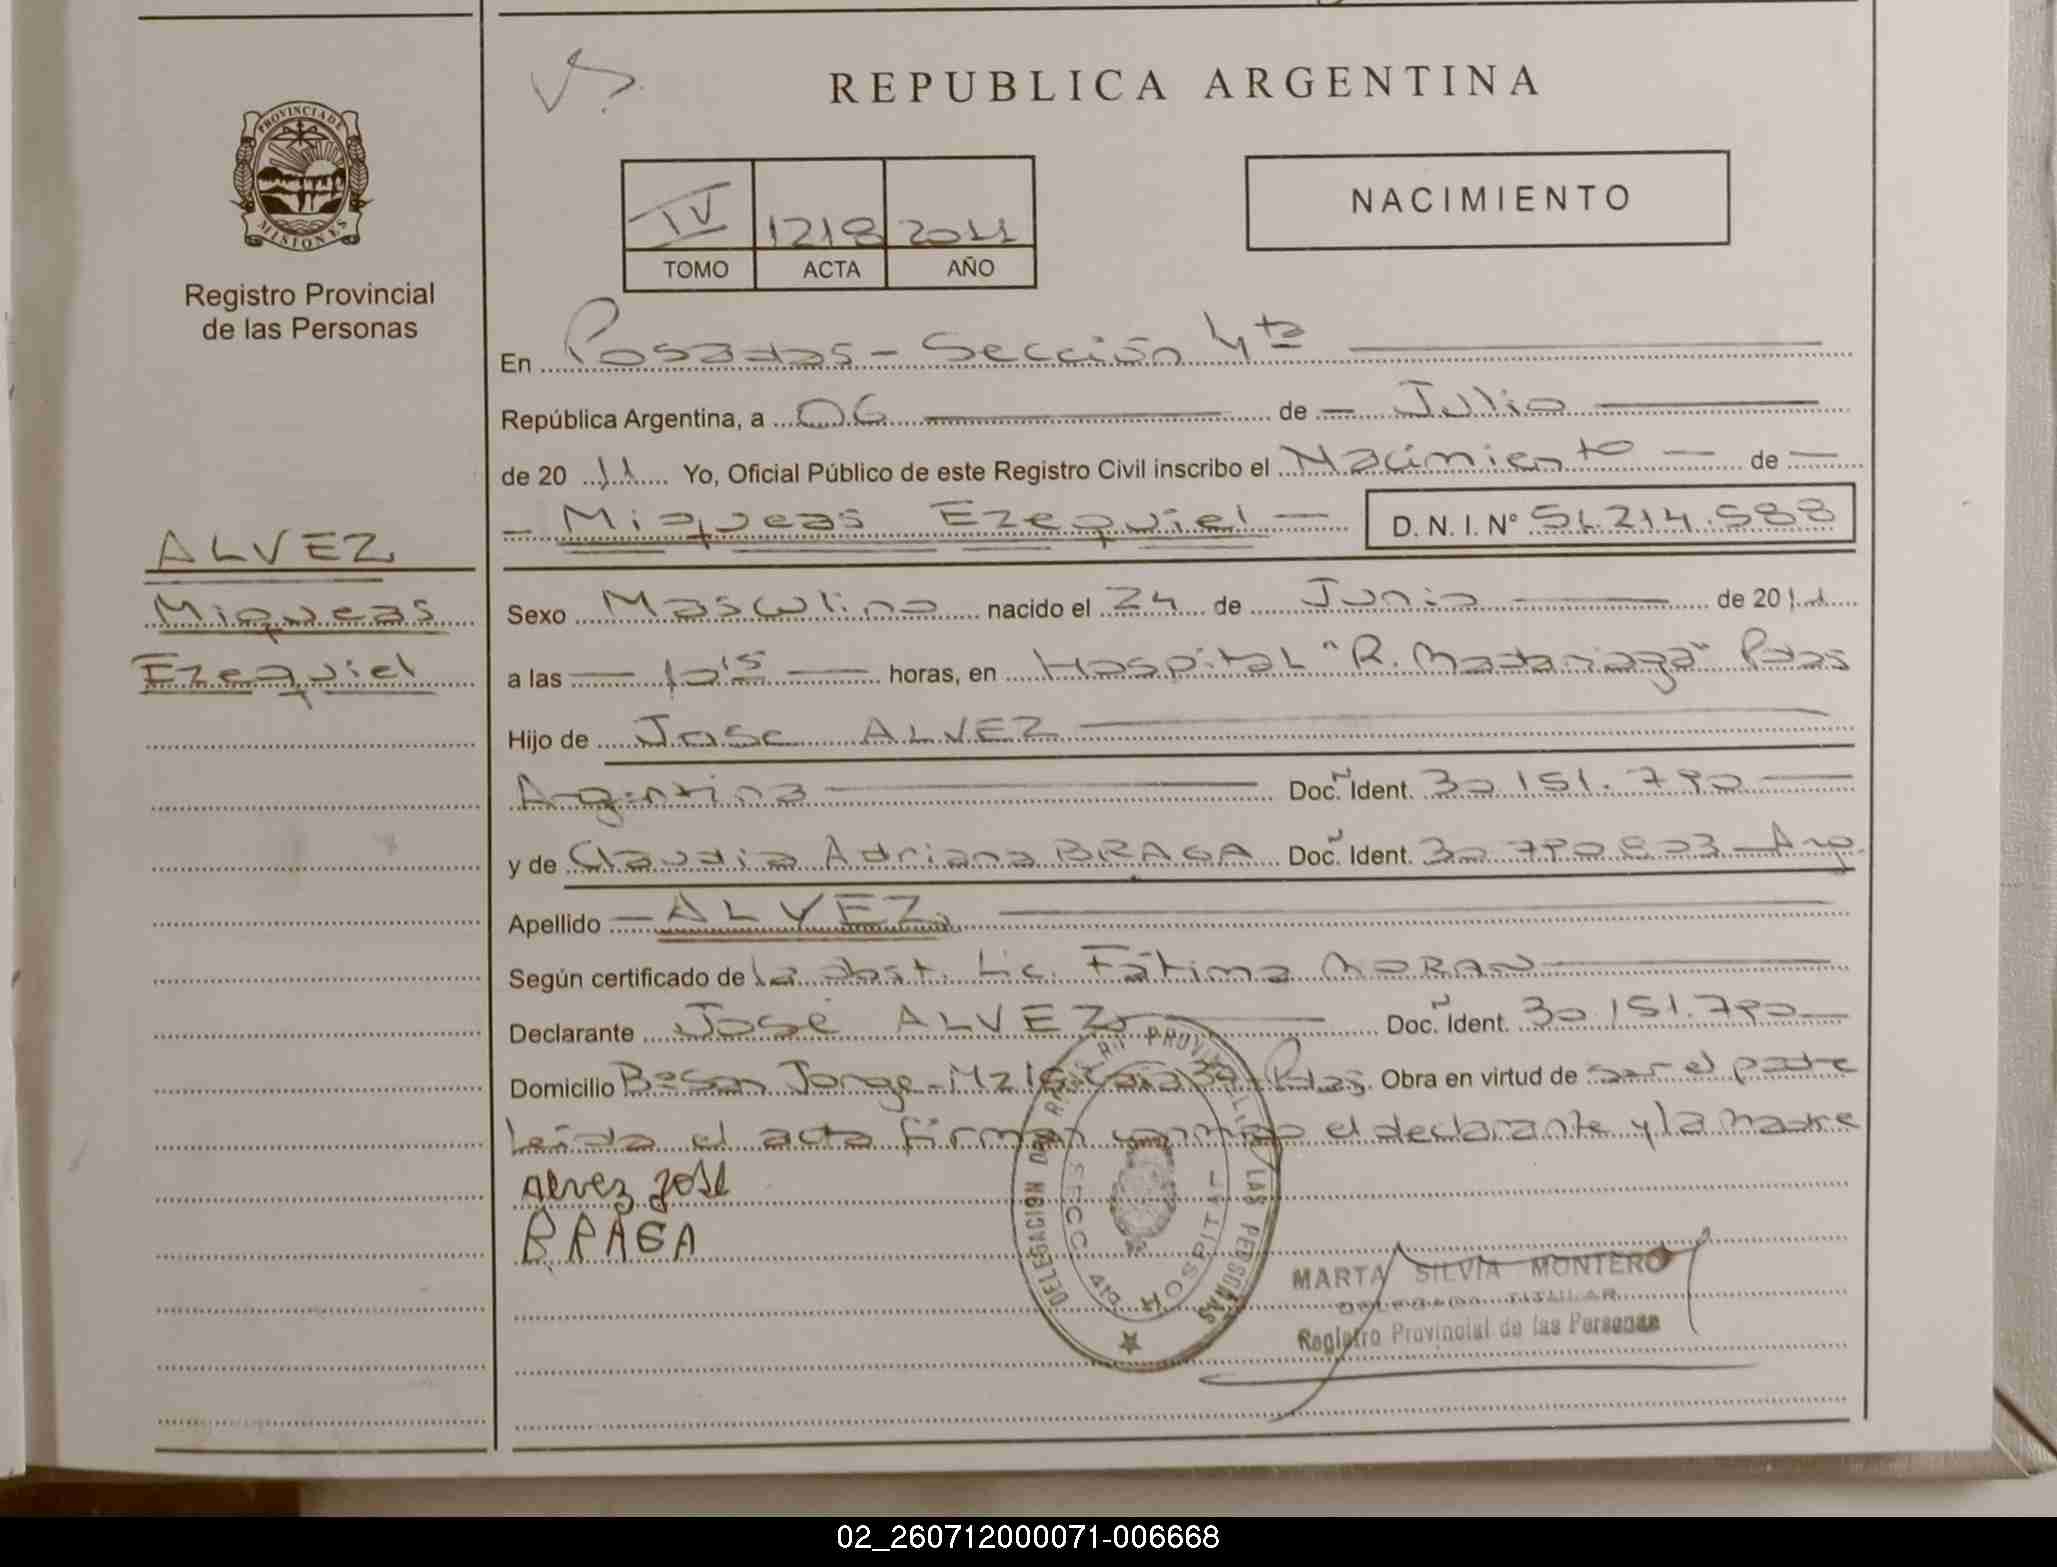 REPUBLICA ARGENTINA
PROVINCIA DE
MISIONES
Registro Provincial
de las Personas
IV 1218 2011
TOMO ACTA AÑO
NACIMIENTO
En Posadas - Sección 4ta
República Argentina, a 06 de Julio
de 20 11 Yo, Oficial Público de este Registro Civil inscribo el Nacimiento de
Miqueas Ezequiel D. N. I. N° 51.214.588
ALVEZ
Miqueas
Ezequiel
Sexo Masculino nacido el 24 de Junio de 2011
a las 10 15 horas, en Hospital "R. Madariaga" Pdas
Hijo de Jose ALVEZ
Argentina Doc. Ident. 30.151.790
y de Claudia Adriana BRAGA Doc. Ident. 30.790.803 Arg.
Apellido ALVEZ
Según certificado de la obst. Lic. Fátima MORAN
Declarante José ALVEZ Doc. Ident. 30.151.790
Domicilio Jorge Mz 16 Casa Pdas. Obra en virtud de ser el padre
Leída el acta firman conmigo el declarante y la madre
Alvez Jose
BRAGA
DELEGACION DEL REGISTRO PROVINCIAL DE LAS PERSONAS
SECC 4ta HOSPITAL
MARTA SILVIA MONTERO
DELEGADA TITULAR
Registro Provincial de las Personas
02_260712000071-006668